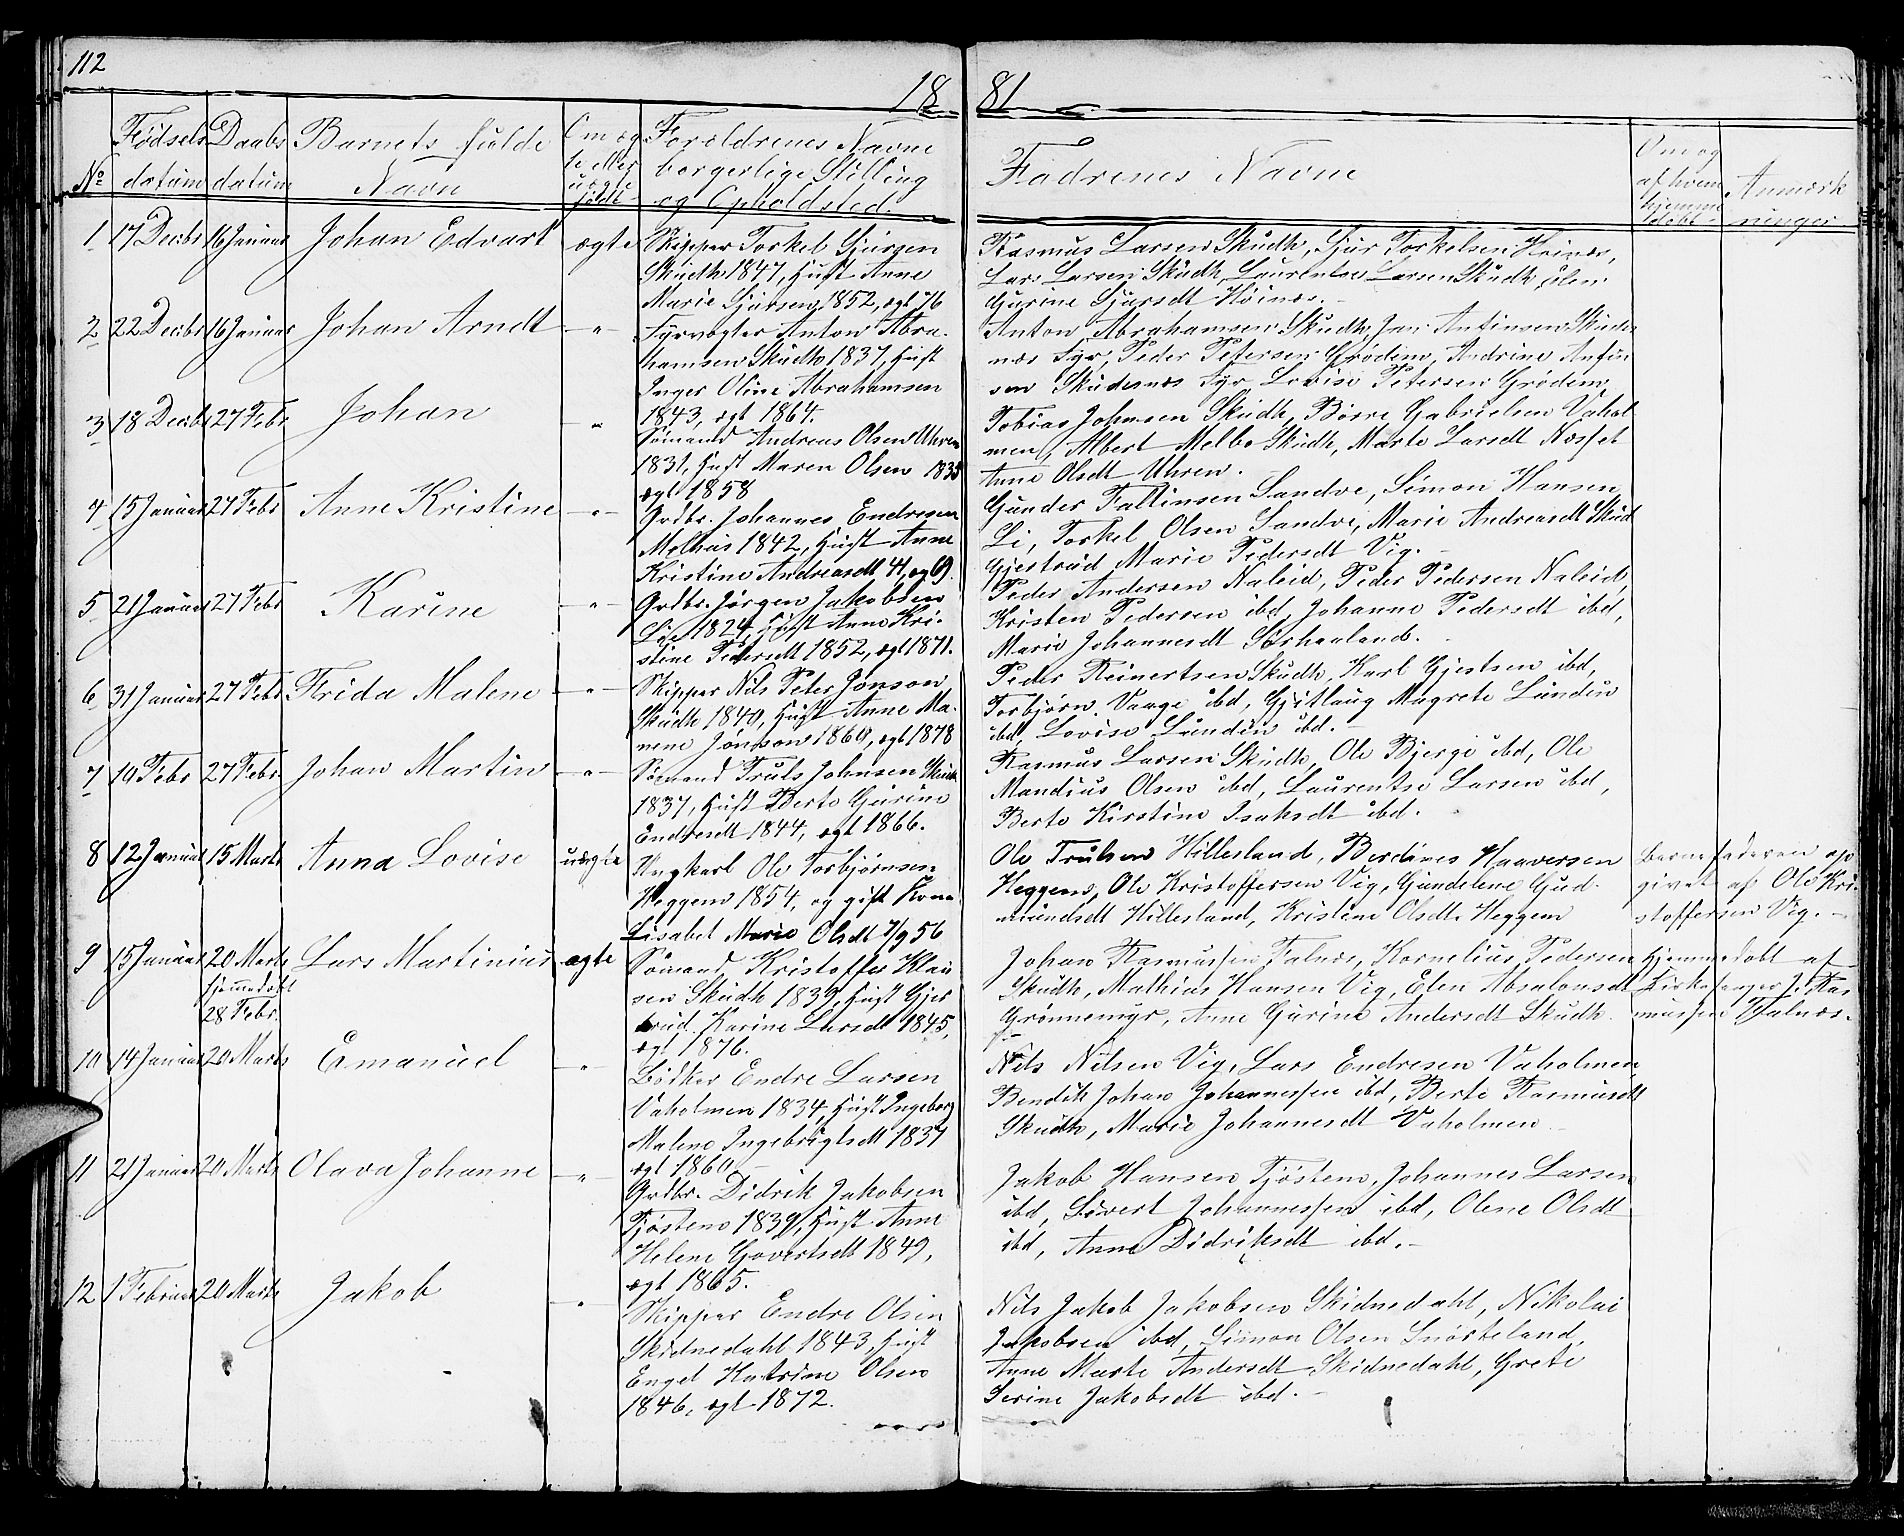 112
18 81
No Fødsels datum Daabs datum Barnets fulde Navn Om ægte eller uægte født Forældrenes Navne borgerlige Stilling og Opholdsted. Fadrenes Navne Om og af hvem hjemmedøbt Anmærkninger
1 17 Decbr 16 Januar Johan Edvart ægte
Skipper Torkel Sjursen
Skudh. 1847, Hust. Anne
Marie Sjursen 1852, ægt 76
Rasmus Larsen Skudh, Sjur Torkelsen Høines,
Lars Larsen Skudh, Laurentse Larsen Skudh, Elen
Gurine Sjursdt Høines.
2 22 Decbr 16 Januar Johan Arndt - " -
Fyrvogter Anton Abra-
hamsen Skudh 1837, Hust
Inger Oline Abrahamsen
1843, ægt 1864.
Anton Abrahamsen Skudh, Jan Antinsen Skudes
næs Fyr, Peder Petersen Grødem, Andrine Anfin
sen Skudesnæs Fyr Lovise Petersen Grødem
3 18 Decbr 27 Febr Johan "
Sømand Andreas Olsen Uhren
1831, Hust Maren Olsen 1835
ægt 1858
Tobias Johnsen Skudh, Børre Gabrielsen Vahol
men, Albert Melbe Skudh, Marte Larsdt Næsset
Anne Olsdt Uhren.
4 15 Januar 27 Febr Anne Kristine - " -
Grdbr. Johannes Endresen
Melhus 1842, Hust Anne
Kristine Andreasdt 41, ægt 69.
Gunder Faltinsen Sandve, Simon Hansen
Li, Torkel Olsen Sandve, Marie Andreasdt Skud
Gjestrud Marie Pedersdt Vig.
5 21 Januar 27 Febr Karine - " -
Grdbr. Jørgen Jakobsen
Lie 1824, Hust Anne Kri-
stine Pedersdt 1852, ægt 1871.
Peder Andersen Naleid, Peder Pedersen Naleid,
Kristen Pedersen ibd, Johanne Pedersdt ibd,
Marie Johannesdt Sørhaaland.
6 31 Januar 27 Febr Frida Malene - " -
Skipper Nils Peter Jonson
Skudh 1840, Hust Anne Ma-
nene Jonson 1860, ægt 1878
Peder Reinertsen Skudh, Karl Gjestsen ibd,
Torbjørn Vaage ibd, Gjitlaug Magrete Lundin
ibd, Lovise Lundin ibd.
7 10 Febr 27 Febr Johan Martin - " -
Sømand Truls Johnsen Skudh
1837, Hust Berte Gurine
Endresdt 1844, ægt 1866.
Rasmus Larsen Skudh, Ole Bjerge ibd, Ole
Mandius Olsen ibd, Laurentse Larsen ibd,
Berte Kirstine Isaksdt ibd.
8 12 Januar 15 Marts Anna Lovise uægte
Ungkarl Ole Torbjørnsen
Heggem 1854, og gift Kone
Lisabet Marie Olsdt 7/9 56
Ole Trulsen Hillesland, Berdines Haaversen
Heggem, Ole Kristoffersen Vig, Gundelene Gud-
mundsdt Hillesland, Kristine Olsdt. Heggem
Barnefaderen op
givet af Ole Kri-
stoffersen Vig. -
9 15 Januar 20 Marts Hjemmedøbt 28 Febr. Lars Martinius ægte
Sømand Kristoffer Klau
sen Skudh 1839, Hust Gjer
trud Karine Larsdt 1845,
ægt 1876.
Johan Rasmussen Falnæs, Kornelius Pedersen
Skudh, Mathias Hansen Vig, Elen Absalonsd
Grønnemyr, Anne Gurine Andersdt Skudh.
Hjemmedøbt af
Kirkesanger J. Ras
mussen Falnæs.
10 14 Januar 20 Marts Emanuel - " -
Bødker Endre Larsen
Vaholmen 1834, Hust Ingeborg
Malene Ingebrigtsdt 1837
ægt 1860
Nils Nilsen Vig, Lars Endresen Vaholmen,
Bendik Johan Johannessen ibd, Berte Rasmusdt
Skudh, Marie Johannesdt Vaholmen
11 21 Januar 20 Marts Olava Johanne - " -
Grdbr. Didrik Jakobsen
Tjøstem 1839, Hust Anne
Helene Govertsdt 1849,
ægt 1865.
Jakob Hansen Tjøstem, Johannes Larsen
ibd, Sivert Johannessen ibd, Olene Olsdt
ibd, Anne Didriksdt ibd. -
12 1 Februar 20 Marts Jakob "
Skipper Endre Olsen
Skidnedahl 1843, Hust
Engel Katrine Olsen
1846, ægt 1872.
Nils Jakob Jakobsen Skidnedahl, Nikolai
Jakobsen ibd, Simon Olsen Snørteland,
Anne Marte Andersdt Skidnedahl, Grete
Serine Jakobsdt ibd. -